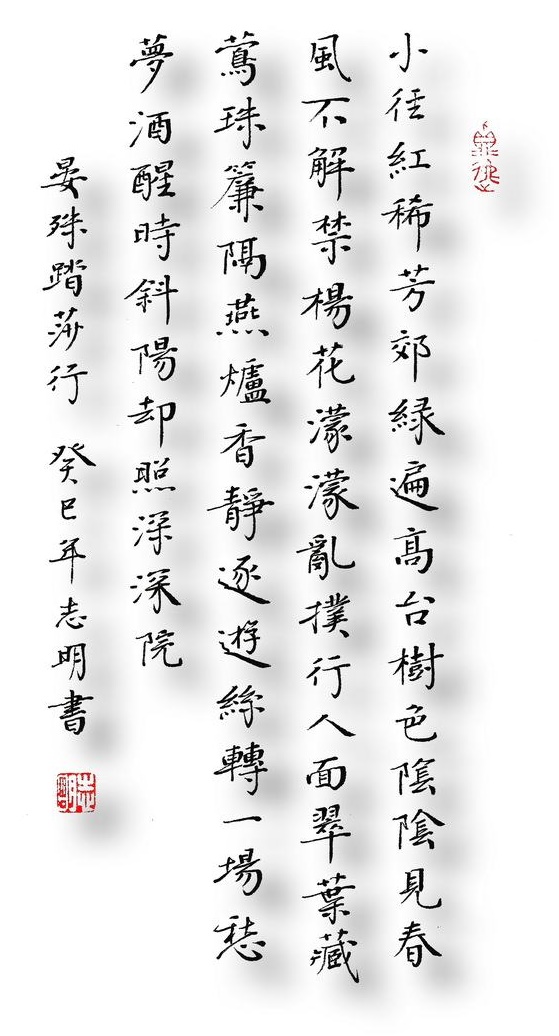 小径紅稀芳郊緑遍髙台樹色陰陰見春
風不解禁楊花濛濛亂撲行人面翠葉藏
鶯珠簾隔燕爐香靜逐遊絲轉一場愁
夢酒醒時斜陽却照深深院
晏殊踏莎行 癸巳年志明書